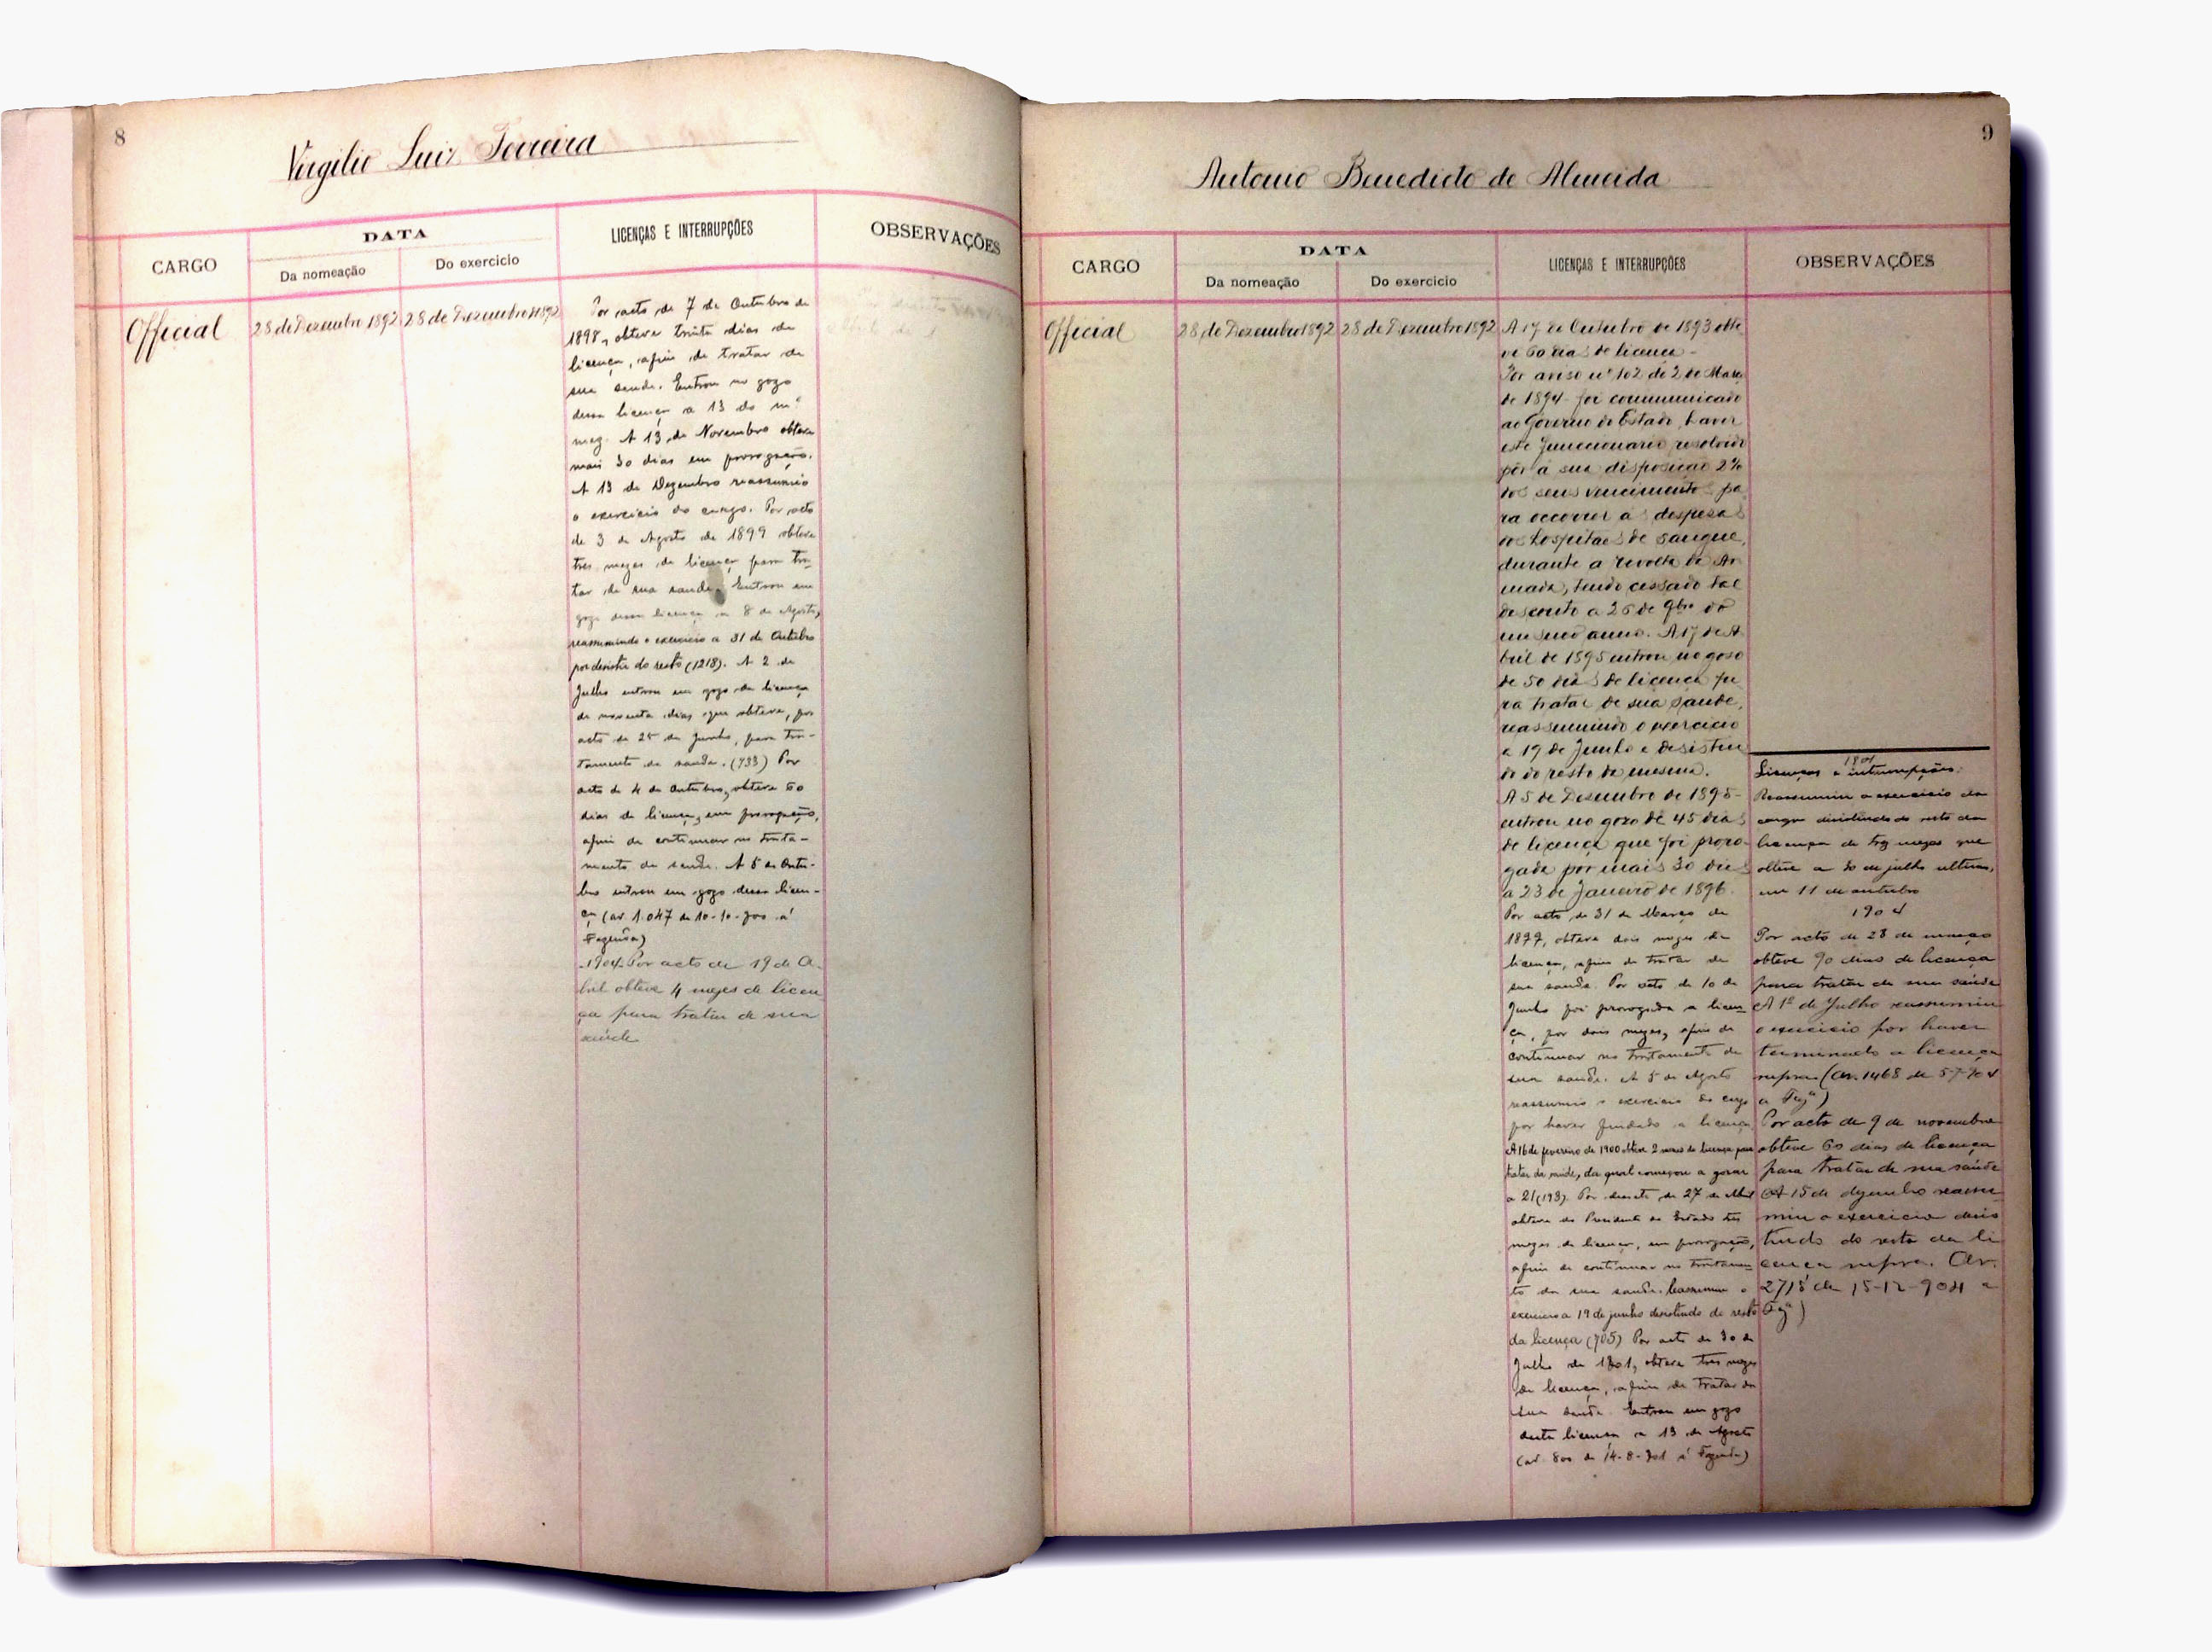 8
Virgilio Luiz Ferreira
CARGO
DATA
Da nomeação
Do exercicio
LICENÇAS E INTERRUPÇÕES
OBSERVAÇÕES
Official
28 de Dezembro 1892
28 de Dezembro 1892
Por acto de 7 de Outubro de
1898, obteve trinta dias de
licença, afim de tratar de
sua saude. Entrou no gozo
dessa licença a 13 do m.º
mez. A 13 de Novembro obteve
mais 30 dias em prorogação.
A 13 de Dezembro reassumio
o exercicio do cargo. Por acto
de 3 de Agosto de 1899 obteve
tres mezes de licença para tra-
tar de sua saude. Entrou em
gozo dessa licença a 8 de Agosto,
reassumindo o exercicio a 31 de Outubro
por desistir do resto (1218). A 2 de
Julho entrou em gozo da licença
de noventa dias que obteve, por
acto de 25 de Junho, para tra-
tamento de saude. (733) Por
acto de 4 de Outubro, obteve 60
dias de licença, em prorogação,
afim de continuar no trata-
mento de saude. A 5 de Outu-
bro entrou em gozo dessa licen-
ça (av. 1.047 de 10-10-900 á
Fazenda)
1904. Por acto de 19 de A-
bril obteve 4 mezes de licen
ça para tratar de sua
saúde
9
Antonio Benedicto de Almeida
CARGO
DATA
Da nomeação
Do exercicio
LICENÇAS E INTERRUPÇÕES
OBSERVAÇÕES
Official
28 de Dezembro 1892
28 de Dezembro 1892
A 17 de Outubro de 1893 obte
ve 60 dias de licença -
Por aviso nº 102 de 2 de Março
de 1894 foi communicado
ao Governo do Estado, haver
este funccionario resolvido
pôr á sua disposição 2%
dos seus vencimentos pa
ra occorrer ás despezas
dos hospitaes de sangue,
durante a revolta da Ar
mada, tendo cessado tal
desconto a 26 de 9bro do
mesmo anno. A 17 de A
bril de 1895 entrou no goso
de 50 dias de licença pa
ra tratar de sua saude,
reassumindo o exercicio
a 19 de Junho e desistin
do do resto da mesma.
A 5 de Dezembro de 1895
entrou no gozo de 45 dias
de licença que foi proro-
gada por mais 30 dias
a 23 de Janeiro de 1896.
Por acto de 31 de Março de
1899, obteve dois mezes de
licença, afim de tratar de
sua saude. Por acto de 10 de
Junho foi prorogada a licen
ça, por dois mezes, afim de
continuar no tratamento de
sua saude. A 5 de Agosto
reassumio o exercicio do cargo
por haver findado a licença.
A 16 de fevereiro de 1900 obteve 2 mezes de licença para
tratar da saude, da qual começou a gozar
a 21 (193). Por decreto de 27 de Abril
obteve do Presidente do Estado tres
mezes de licença, em prorogação,
afim de continuar no tratamen
to da sua saude. Reassumiu o
exercicio a 19 de junho desistindo do resto
da licença (705) Por acto de 30 de
Julho de 1901, obteve tres mezes
de licença, afim de tratar da
sua saude. Entrou em gozo
desta licença a 13 de Agosto
(av. 800 de 14-8-901 á Fazenda)
1901
Licenças e interrupções:
Reassumiu o exercicio do
cargo desistindo do resto da
licença de trez mezes que
obteve a 30 de julho ultimo,
em 11 de outubro
1904
Por acto de 28 de março
obteve 90 dias de licença
para tratar de sua saúde
A 1º de Julho reassumiu
o exercicio por haver
terminado a licença
supra (Av. 1468 de 5-7-904
a Fazª)
Por acto de 9 de novembro
obteve 60 dias de licença
para tratar de sua saúde
A 15 de dezembro reassu
miu o exercicio desis
tindo do resto da li
cença supra. Av.
2715 de 15-12-904 a
Fazª)